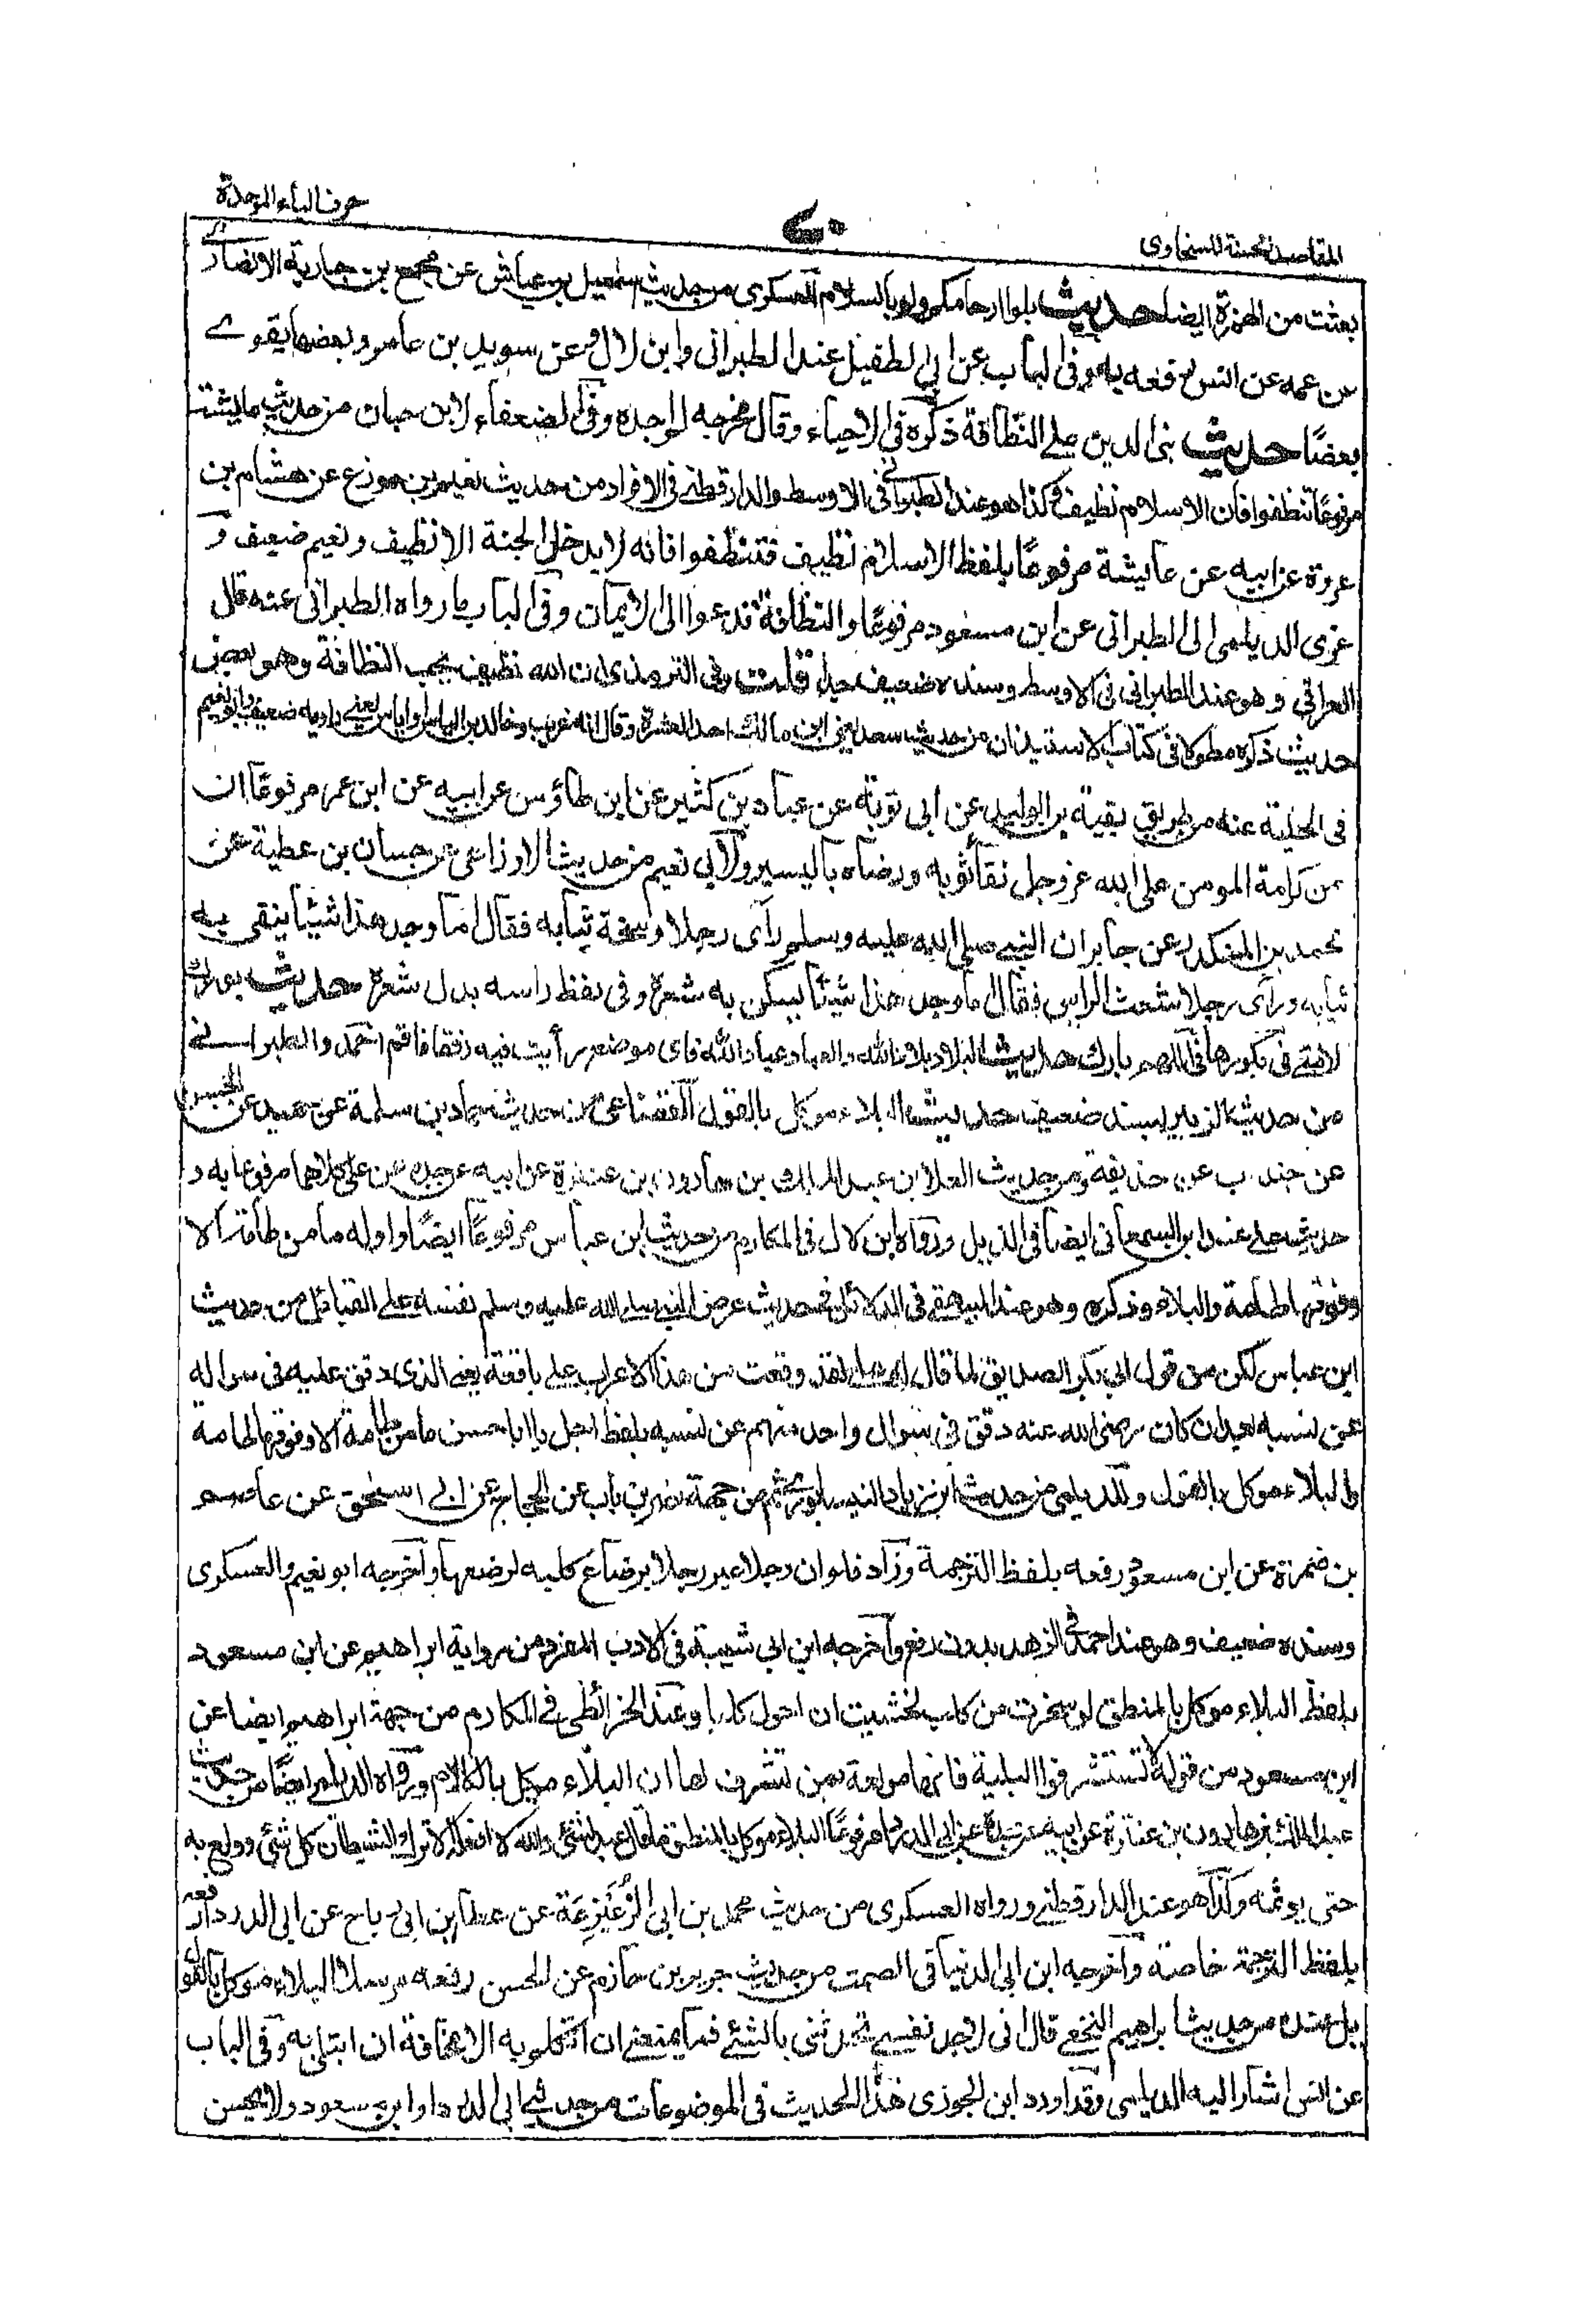 حرف الباء الموحدة
المقاصد الحسنة للسخاوى
بعثت من الهمزة ايضا حديث بلوا ارحامكم ولو بالسلام العسكرى من حديث اسمعيل بن عياش عن مجمع بن جارية الانصارى
عن عمه عن انس رفعه به وفى الباب عن ابى الطفيل عند الطبرانى وابن لال وعن سويد بن عامر وبعضها يقوى
بعضًا حديث بنى الدين على النظافة ذكره فى الاحياء وقال مخرجه لم اجده وفى الضعفاء لابن حبان من حديث عايشة
مرفوعًا تنظفوا فان الاسلام نظيف وكذا هو عند الطبرانى فى الاوسط والدارقطنى فى الافراد من حديث نعيم بن مورع عن هشام بن
عروة عن ابيه عن عايشة مرفوعًا بلفظ الاسلام نظيف فتنظفوا فانه لا يدخل الجنة الا نظيف ونعيم ضعيف و
عزى الديلمى الى الطبرانى عن ابن مسعود مرفوعًا والنظافة تدعوا الى الايمان وفى الباب ما رواه الطبرانى عنه قال
العراقى وهو عند الطبرانى فى الاوسط وسنده ضعيف جدا قلت وفى الترمذى ان الله نظيف يحب النظافة وهو بعض
حديث ذكره مطولا فى كتاب الاستيذان من حديث سعد يعنى ابن مالك احد العشرة وقال انه غريب وخالد بن الياس او اياس يعنى راويه ضعيف ولابى نعيم
فى الحلية عنه من طريق بقية بن الوليد عن ابى توبة عن عباد بن كثير عن ابن طاؤس عن ابيه عن ابن عمر مرفوعًا ان
من كرامة المومن على الله عز وجل نقاء ثوبه ورضاه باليسير ولابى نعيم من حديث الاوزاعى عن حسان بن عطية عن
محمد بن المنكدر عن جابر ان النبى صلى الله عليه وسلم رآى رجلا وسخة ثيابه فقال ما وجد هذا شيئا ينقى به
ثيابه ورآى رجلا شعث الراس فقال ما وجد هذا شيئا يسكن به شعره وفى لفظ راسه بدل شعره حديث بورك
لامتى فى بكورها فى اللهم بارك حديث البلاد بلاد الله والعباد عباد الله فاى موضع رأيت فيه رفقا فاقم احمد والطبرانى
من حديث الزبير بسند ضعيف حديث البلاء موكل بالقول القضاعى من حديث حماد بن سلمة عن حميد عن الحسن
عن جندب عن حذيفة ومن حديث العلا بن عبد الملك بن هارون بن عنترة عن ابيه عن جده عن على كلاهما مرفوعا به و
حديث على عند ابن السمعانى ايضا فى الذيل ورواه ابن لال فى المكارم من حديث ابن عباس مرفوعًا ايضًا واوله ما من طامة الا
وفوقها طامة والبلاء وذكره وهو عند البيهقى فى الدلائل فى حديث عرض النبى صلى الله عليه وسلم نفسه على القبائل من حديث
ابن عباس لكن من قول ابى بكر الصديق لما قال له على لقد وقعت من هذا الاعراب على باقعة يعنى الذى دقق عليه فى سواله
عن نسبه بعد ان كان رضى الله عنه دقق فى سوال واحد منهم عن نسبه بلفظ اجل يا ابا حسن ما من طامة الا وفوقها طامة
والبلاء موكل بالقول وللديلمى من حديث ابن زياد النيسابورى ثم من جهة نصر بن باب عن الحجاج عن ابى اسحق عن عاصم
بن ضمرة عن ابن مسعود رفعه بلفظ الترجمة وزاد فلو ان رجلا عير رجلا برضاع كلبه لرضعها واخرجه ابو نعيم والعسكرى
وسنده ضعيف وهو عند احمد فى الزهد بدون رفع واخرجه ابن ابى شيبة فى الادب المفرد من رواية ابراهيم عن ابن مسعود
بلفظ البلاء موكل بالمنطق لو سخرت من كلب لخشيت ان احول كلبا وعند الخرائطى فى المكارم من جهة ابراهيم ايضا عن
ابن مسعود من قوله لا تستشرفوا البلية فانها مولعة بمن تشرف لها ان البلاء موكل بالكلام ورواه الديلمى ايضًا من حديث
عبد الملك بن هارون بن عنترة عن ابيه عن جده عن ابى الدرداء مرفوعًا البلاء موكل بالمنطق ما قال عبد لشئ والله لا افعله الا ترك الشيطان كل شئ وولع به
حتى يوثمه وكذا هو عند الدارقطنى ورواه العسكرى من حديث محمد بن ابى الزعيزعة عن عطا بن ابى رباح عن ابى الدرداء رفعه
بلفظ الترجمة خاصة واخرجه ابن ابى الدنيا فى الصمت من حديث جرير بن حازم عن الحسن رفعه مرسلا البلاء موكل بالقول
بل عنده من حديث ابراهيم النخعى قال انى لاجد نفسى تحدثنى بالشئ فما يمنعنى ان اتكلم به الا مخافة ان ابتلى به وفى الباب
عن انس اشار اليه الديلمى وقد اورد ابن الجوزى هذا الحديث فى الموضوعات من حديثى ابى الدرداء وابن مسعود ولا يحسن